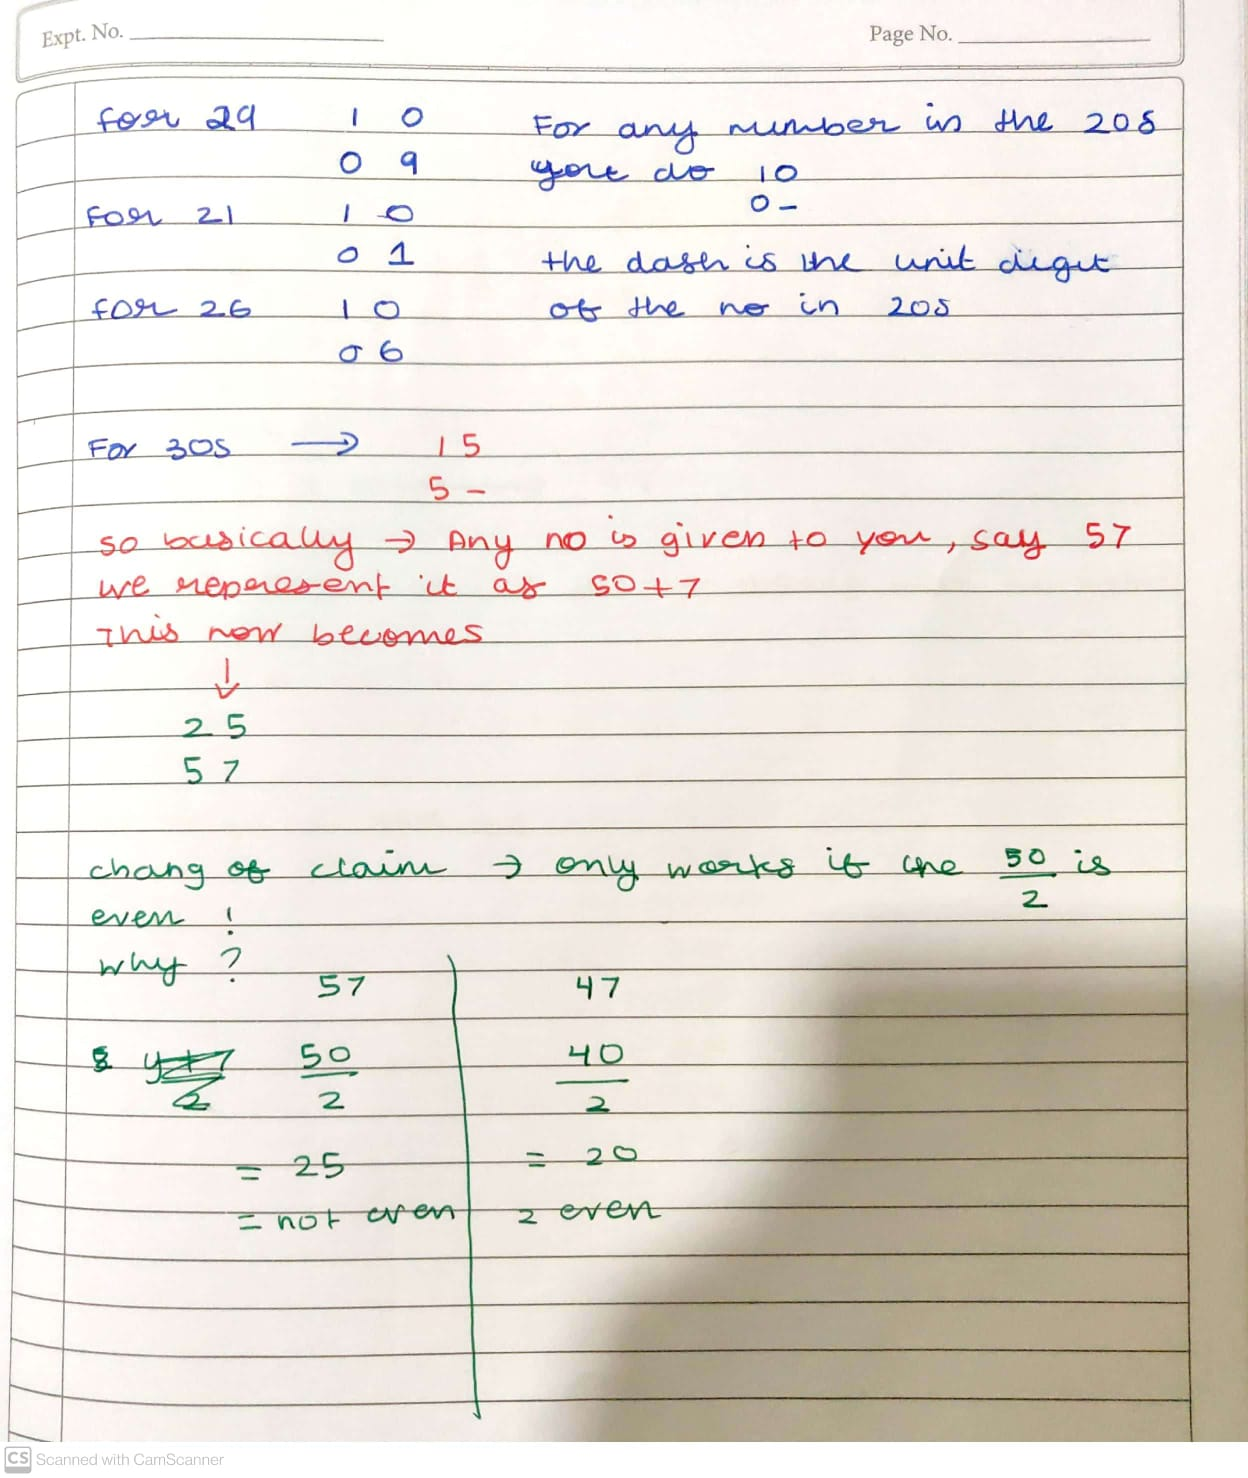 Expt. No.
Page No.
for 29 1 0
0 9
For 21 1 0
0 1
for 26 1 0
0 6
For any number in the 20s
you do 10
0 -
the dash is the unit digit
of the no in 20s
For 30s → 1 5
5 -
so basically → Any no is given to you, say 57
we represent it as 50+7
This now becomes
↓
2 5
5 7
chang of claim → only works if the 50/2 is
even !
why ?
57
50
2
= 25
= not even
47
40
2
= 20
= even
CS Scanned with CamScanner